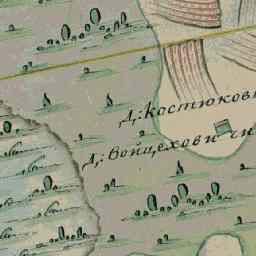 Д: Костюкови
Д: Войцехови чи